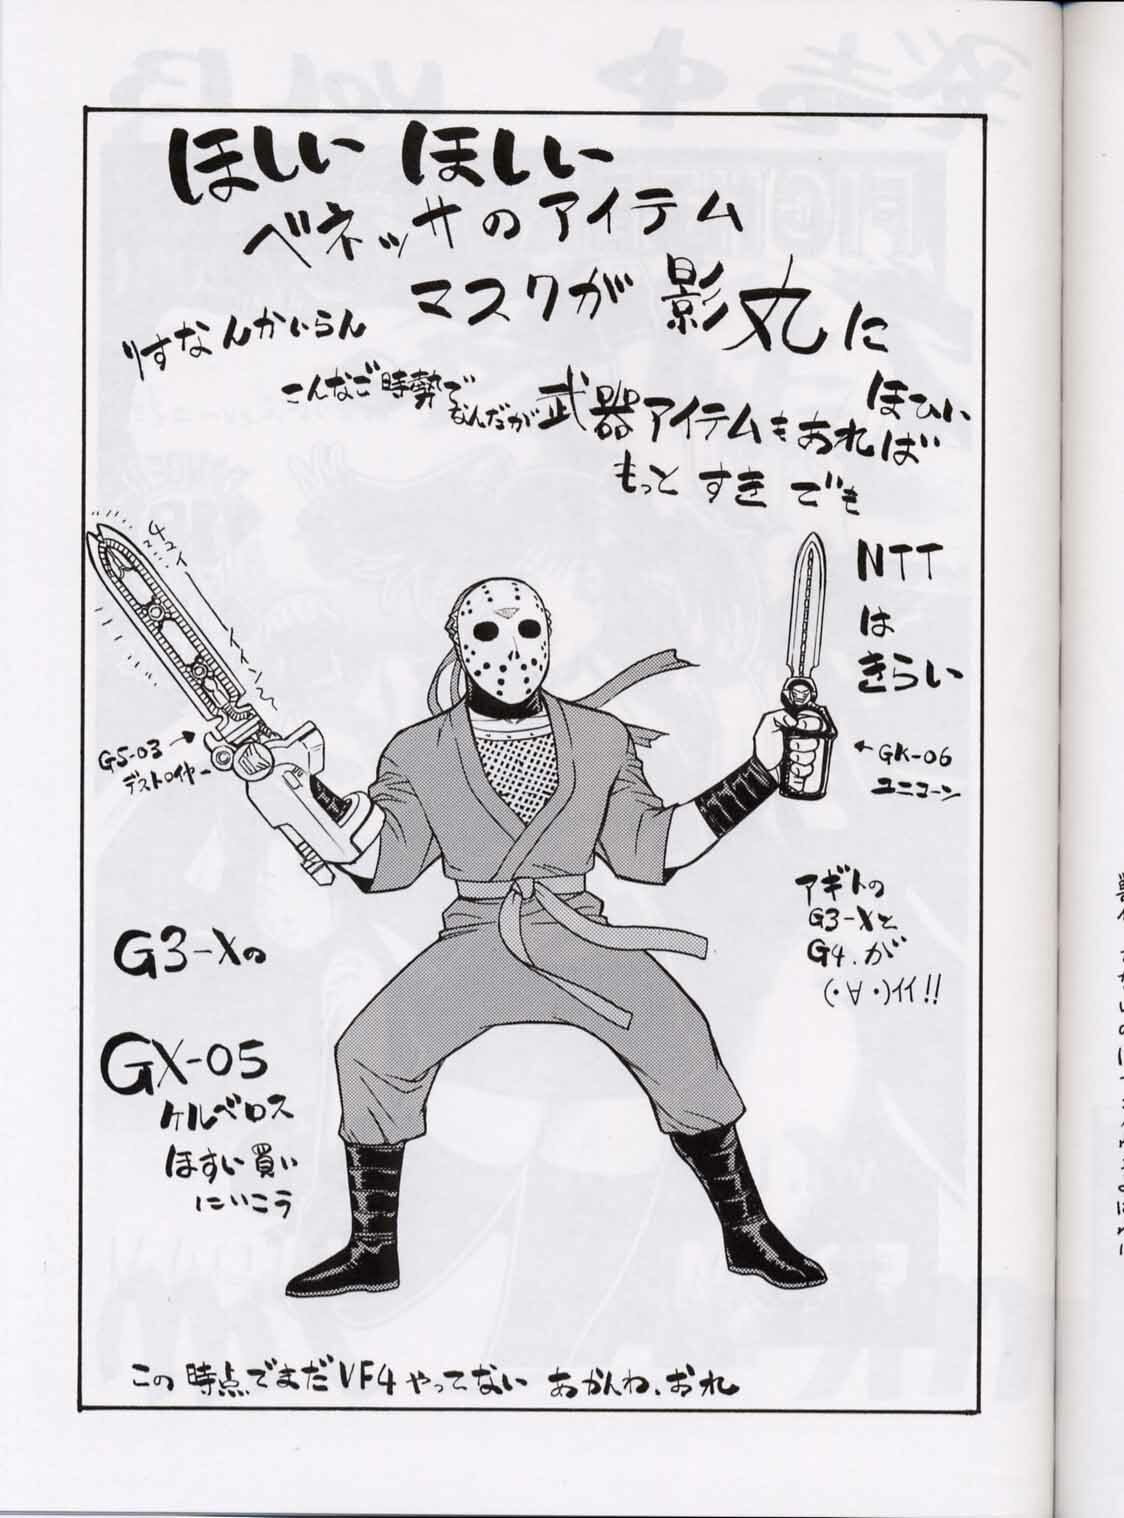 ほしい ほしい
ベネッサのアイテム
マスクが 影丸に
ほひい
りすなんかいらん
こんなご時勢で
なんだが 武器アイテムもあれば
もっと すき でも
NTT
は
きらい
チュイーーーイイーン
GS-03
デストロイヤー
GK-06
ユニコーン
アギトの
G3-Xと
G4.が
(・∀・)イイ!!
G3-Xの
GX-05
ケルベロス
ほすい 買い
にいこう
この時点でまだVF4やってない あかんわ、おれ